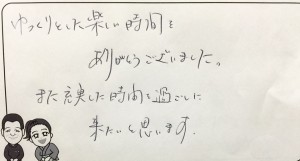 ゆっくりとした楽しい時間を
ありがとうございました。
また充実した時間を過ごしに
来たいと思います.